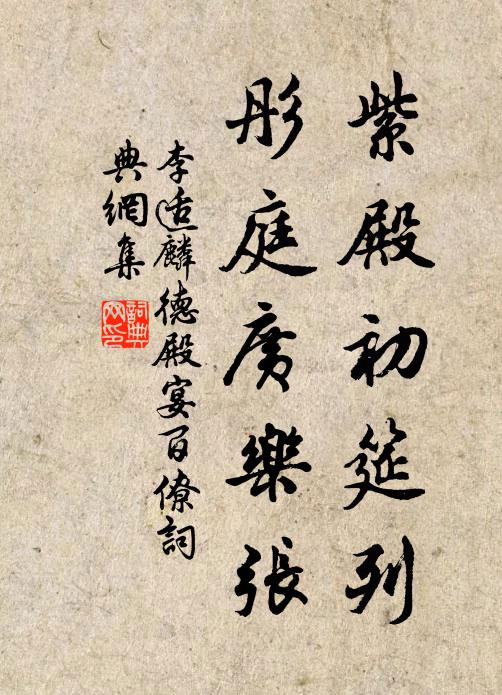 紫殿初筵列
彤庭廣樂張
李适麟德殿宴百僚詞
典網集
詞典網印